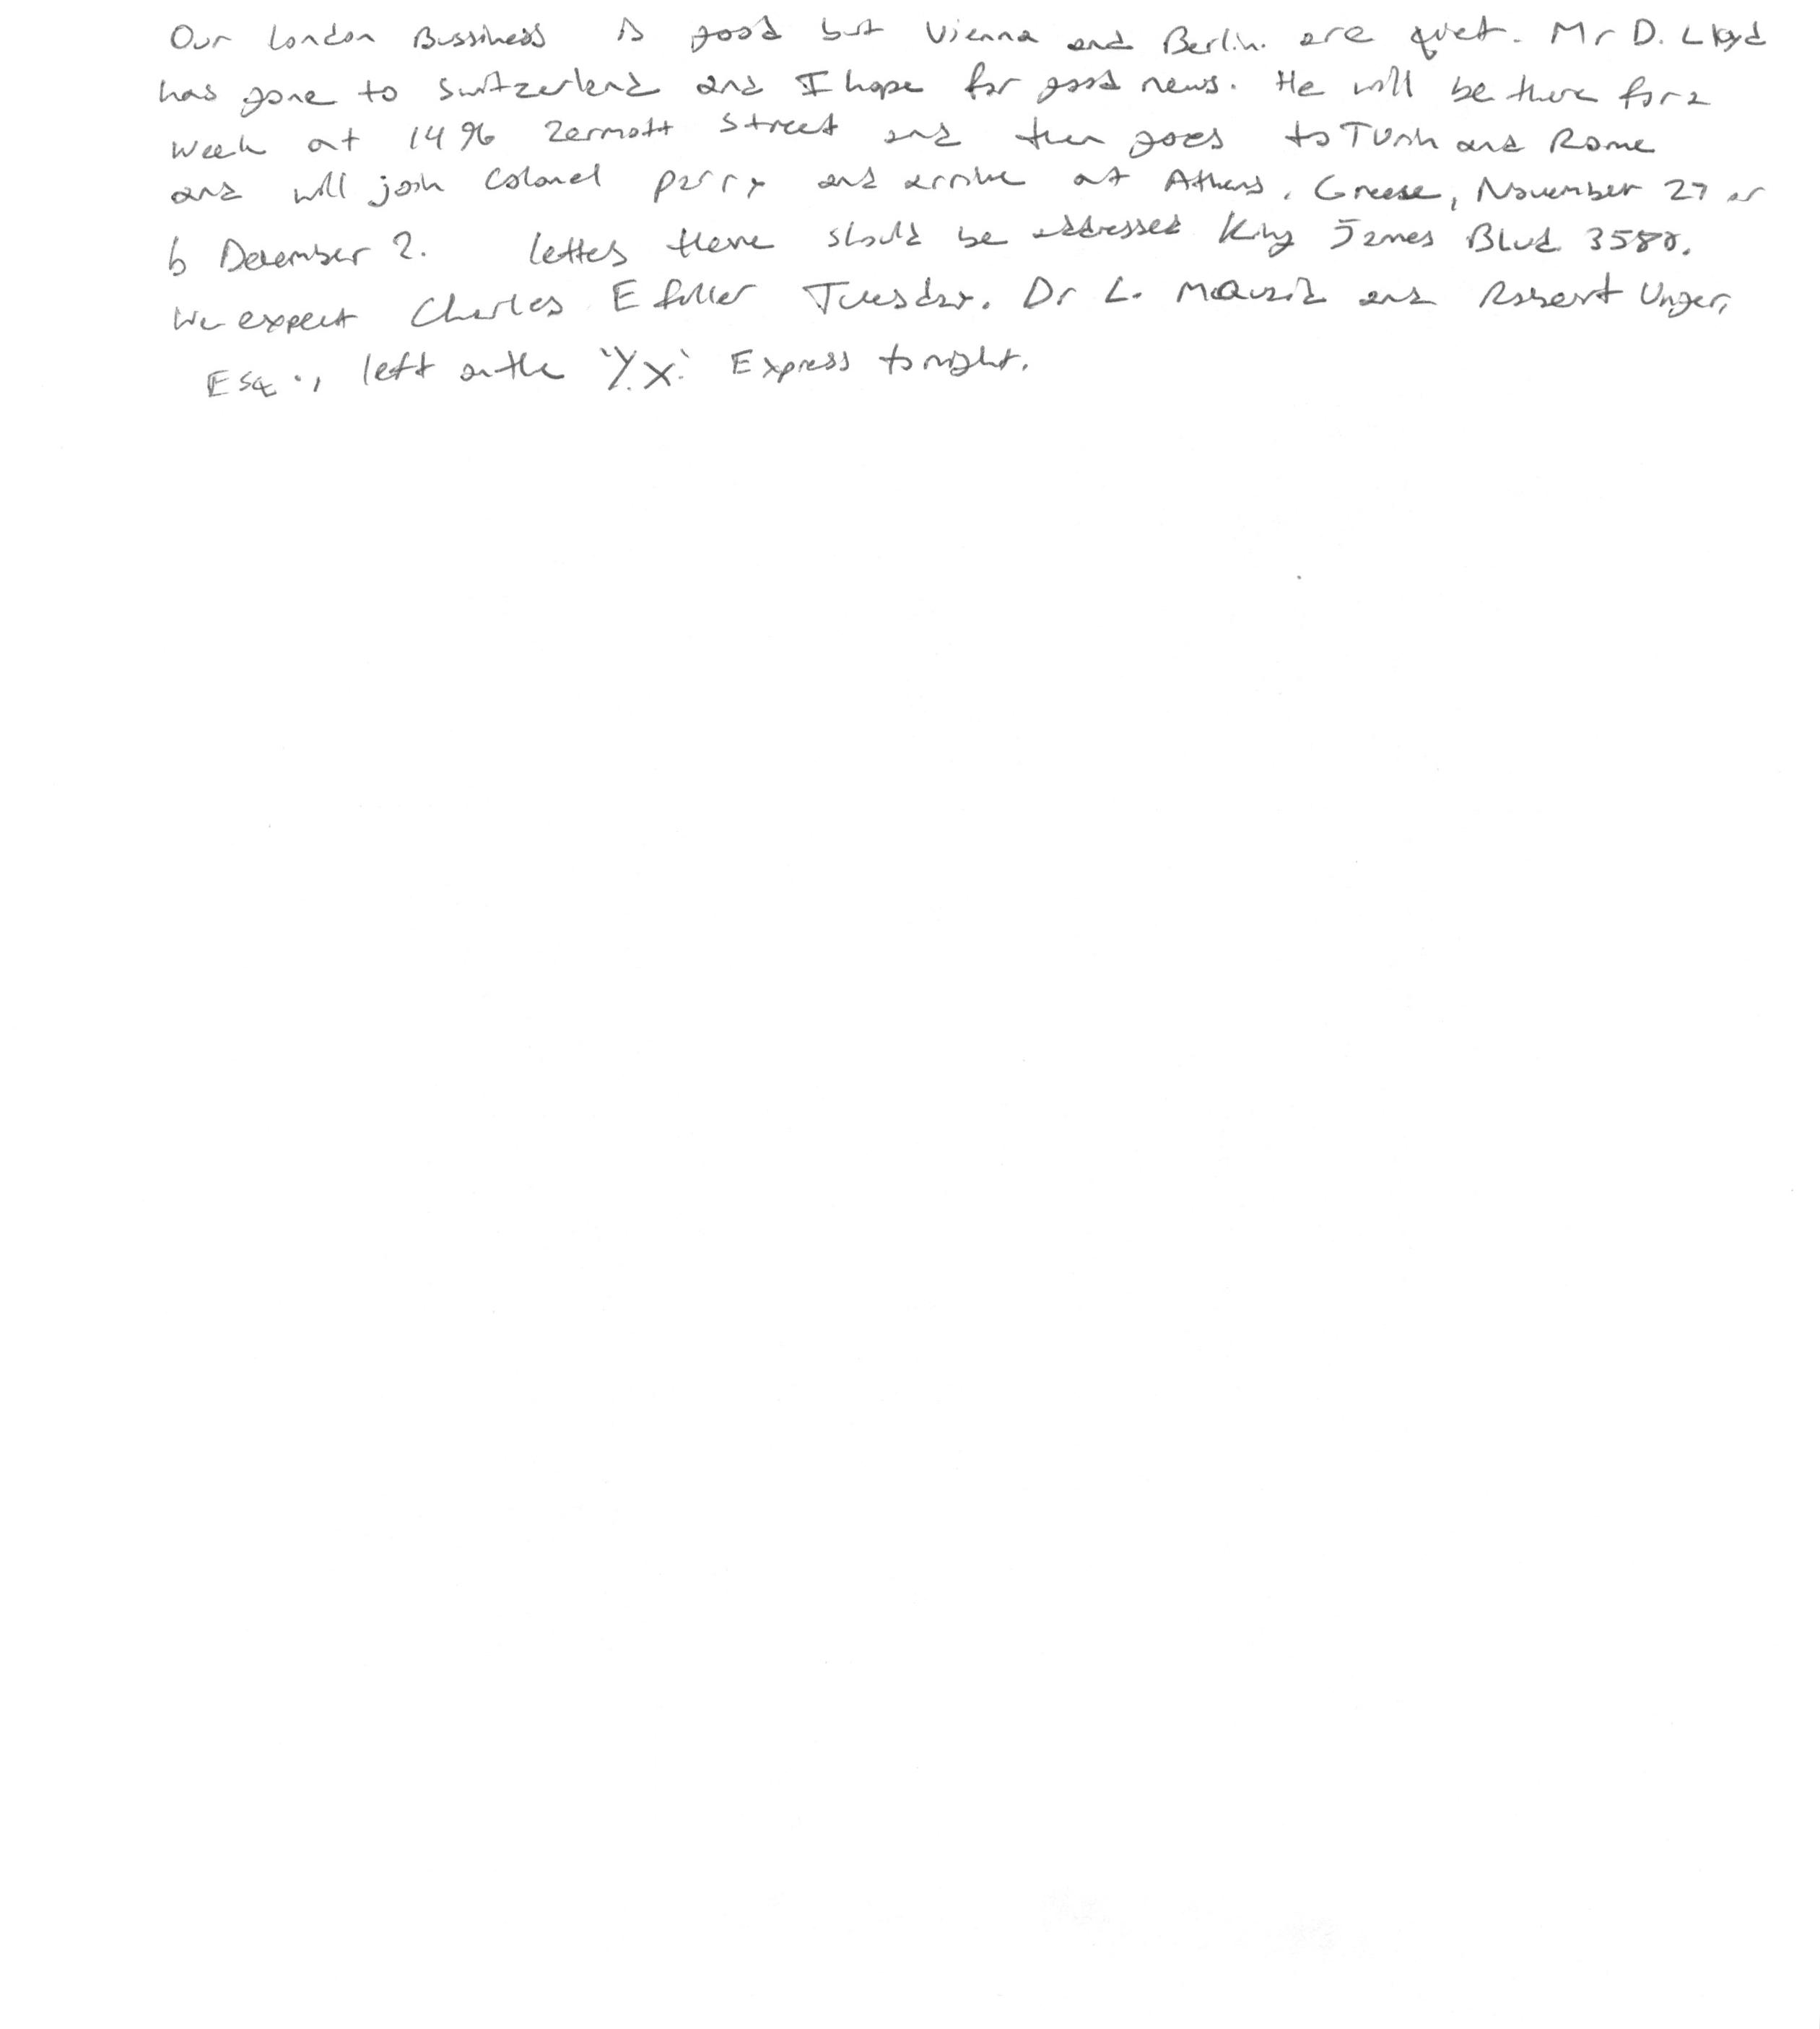 Our London Bussiness is good but Vienna and Berlin. are quiet. Mr D. Lloyd
has gone to Switzerland and I hope for good news. He will be there for a
week at 1496 Zermott Street and then goes to Turin and Rome
and will join Colonel Parry and arrive at Athens, Greese, November 27 or
December 2. letters there should be addressed King James Blvd 3580.
We expect Charles E Fuller Tuesday. Dr L. and Robert Unger,
Esq., left on the "Y.X." Express tonight.